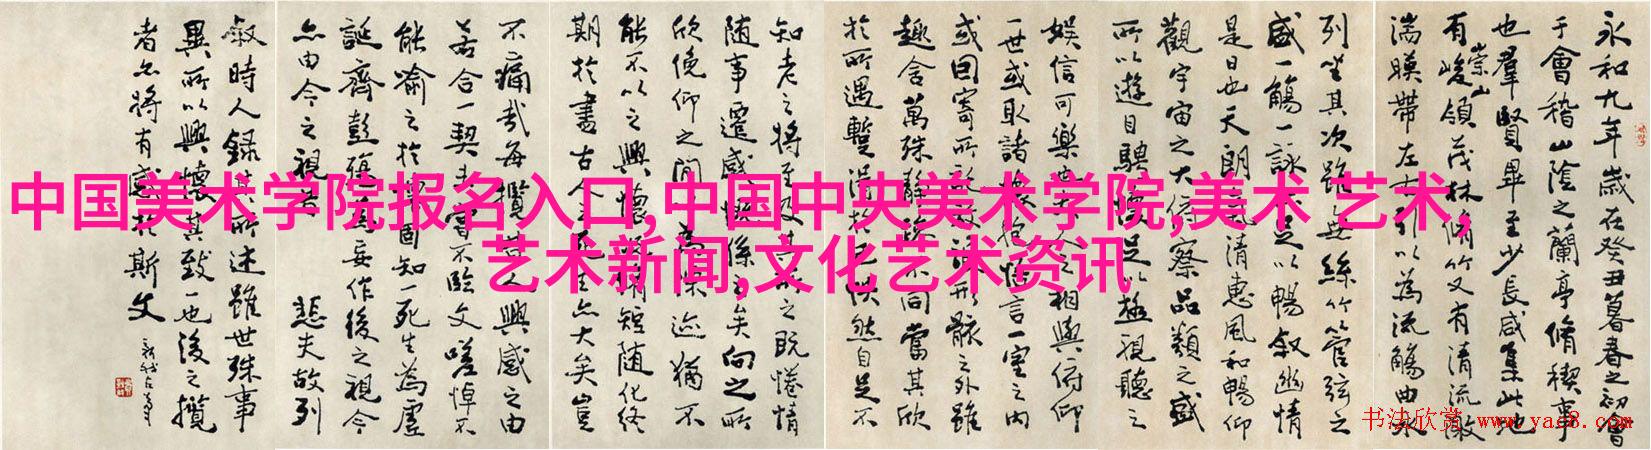 中国美术学院报名入口,中国中央美术学院,美术 艺术,
艺术新闻,文化艺术资讯
永和九年歲在癸丑暮春之初會
于會稽山陰之蘭亭脩稧事
也羣賢畢至少長咸集此地
有崇山峻領茂林脩竹又有清流激
湍暎帶左右引以為流觴曲水
列坐其次雖無絲竹管弦之
盛一觴一詠亦足以暢敘幽情
是日也天朗氣清惠風和暢仰
觀宇宙之大俯察品類之盛
所以遊目騁懷足以極視聽之
娛信可樂也夫人之相與俯仰
一世或取諸懷抱悟言一室之內
或因寄所託放浪形骸之外雖
趣舍萬殊靜躁不同當其欣
於所遇蹔得於己快然自足不
知老之將至及其所之既惓情
隨事遷感慨係之矣向之所
欣俛仰之間以為陳迹猶不
能不以之興懷況脩短隨化終
期於盡古人云死生亦大矣豈
不痛哉每攬昔人興感之由
若合一契未嘗不臨文嗟悼不
能喻之於懷固知一死生為虛
誕齊彭殤為妄作後之視今
亦由今之視昔 悲夫故列
敘時人錄其所述雖世殊事
異所以興懷其致一也後之攬
者亦將有感於斯文
书法欣赏 www.yac8.com